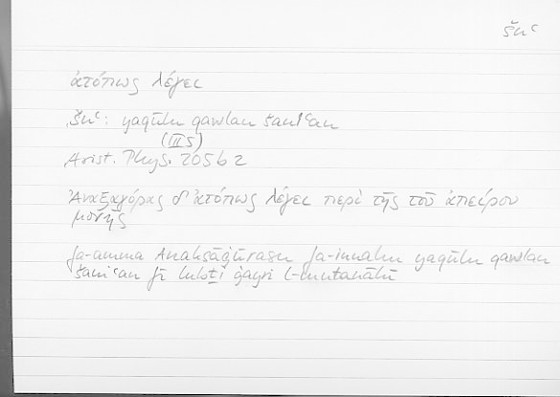 šnʿ
ἀτόπως λέγει
šnʿ: yaqūlu qawlan šanīʿan
(III 5)
Arist. Phys. 205b2
Ἀναξαγόρας δ' ἀτόπως λέγει περὶ τῆς τοῦ ἀπείρου
μονῆς
fa-amma Anaksāġūrasu fa-innahu yaqūlu qawlan
šanīʿan fī lubṯi ġayri l-mutanāhī